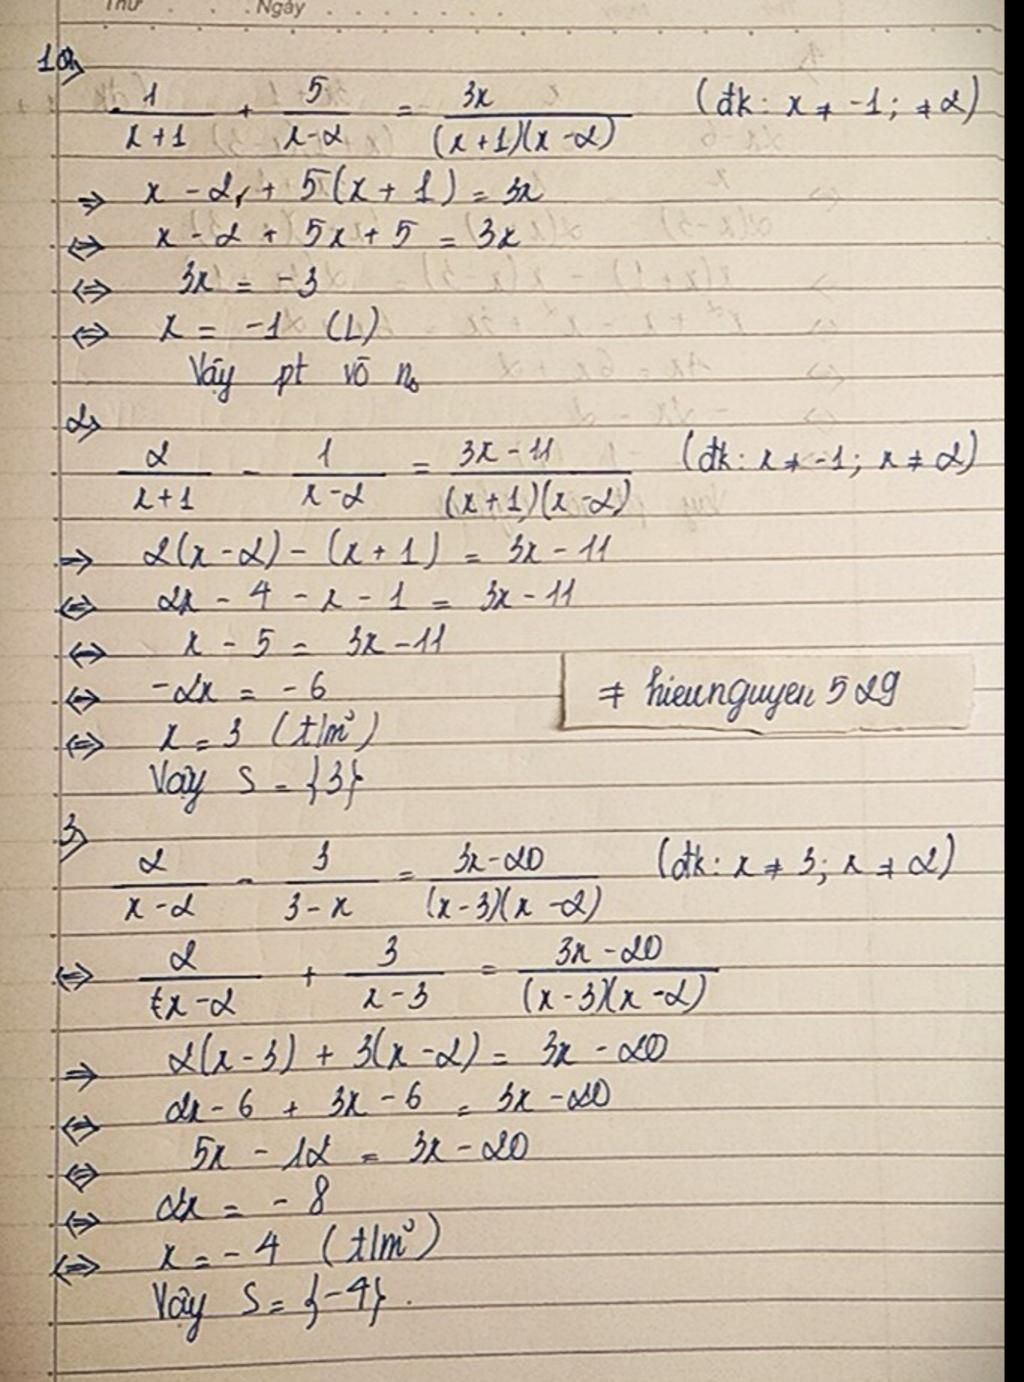 Thứ Ngày
1a,
1/(x+1) + 5/(x-2) = 3x/((x+1)(x-2)) (đk: x ≠ -1; ≠ 2)
=> x - 2 + 5(x + 1) = 3x
<=> x - 2 + 5x + 5 = 3x
<=> 3x = -3
<=> x = -1 (L)
Vậy pt vô no
2,
2/(x+1) - 1/(x-2) = (3x-11)/((x+1)(x-2)) (đk: x ≠ -1; x ≠ 2)
=> 2(x-2) - (x+1) = 3x - 11
<=> 2x - 4 - x - 1 = 3x - 11
<=> x - 5 = 3x - 11
<=> -2x = -6
≠ hieunguyen 529
<=> x = 3 (t/m²)
Vậy S = {3}
3,
2/(x-2) - 3/(3-x) = (3x-20)/((x-3)(x-2)) (đk: x ≠ 3; x ≠ 2)
<=> 2/(x-2) + 3/(x-3) = (3x-20)/((x-3)(x-2))
=> 2(x-3) + 3(x-2) = 3x - 20
<=> 2x - 6 + 3x - 6 = 3x - 20
<=> 5x - 12 = 3x - 20
<=> 2x = - 8
<=> x = - 4 (t/m²)
Vậy S = {-4}.